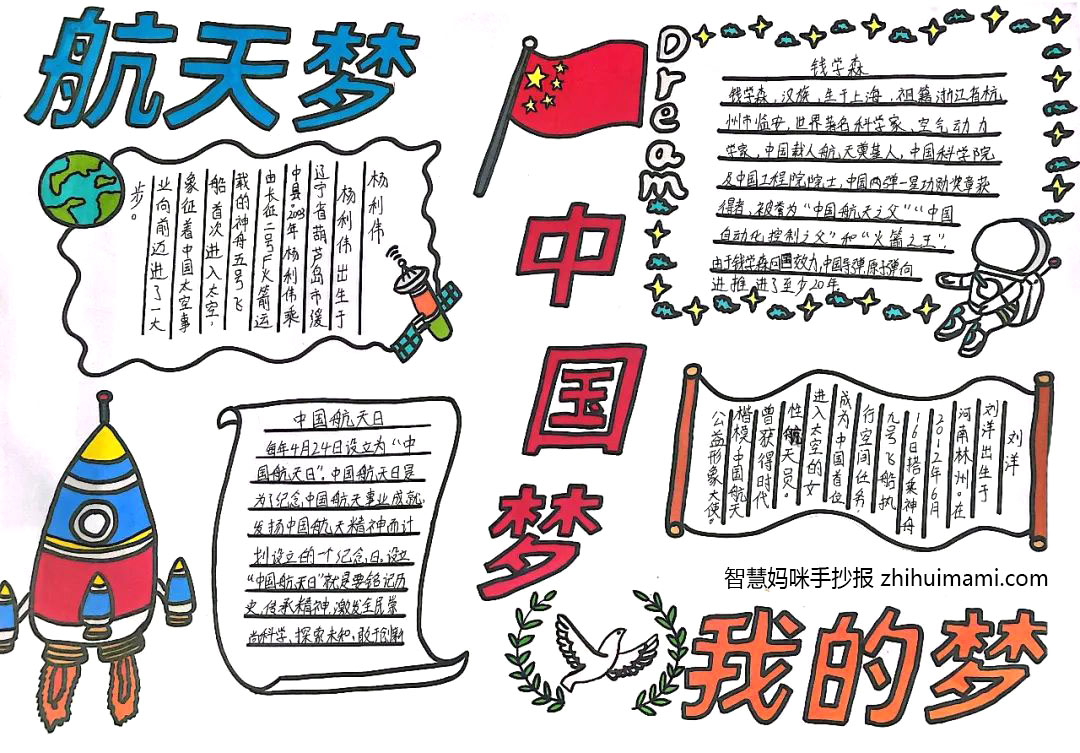 航天梦
杨利伟
杨利伟出生于
辽宁省葫芦岛市缓
中县。2003年杨利伟乘
由长征二号F火箭运
载的神舟五号飞
船首次进入太空，
象征着中国太空事
业向前迈进了一大
步。
Dream
钱学森
钱学森，汉族，生于上海，祖籍浙江省杭
州市临安，世界著名科学家、空气动力
学家，中国载人航天奠基人，中国科学院
及中国工程院院士，中国两弹一星功勋奖章获
得者，被誉为“中国航天之父”“中国
自动化控制之父”和“火箭之王”，
由于钱学森回国效力，中国导弹原子弹向
进推进了至少20年
中国梦
中国航天日
每年4月24日设立为“中
国航天日”。中国航天日是
为了纪念中国航天事业成就，
发扬中国航天精神而计
划设立的一个纪念日，设立
“中国航天日”就是要铭记历
史，传承精神，激发全民崇
尚科学、探索未知、敢于创新
刘洋
刘洋出生于
河南林州。在
2012年6月
16日搭乘神舟
九号飞船执
行空间任务，
成为中国首位
进入太空的女
性航天员。
曾获得时代
楷模、中国航天
公益形象大使。
智慧妈咪手抄报 zhihuimami.com
我的梦